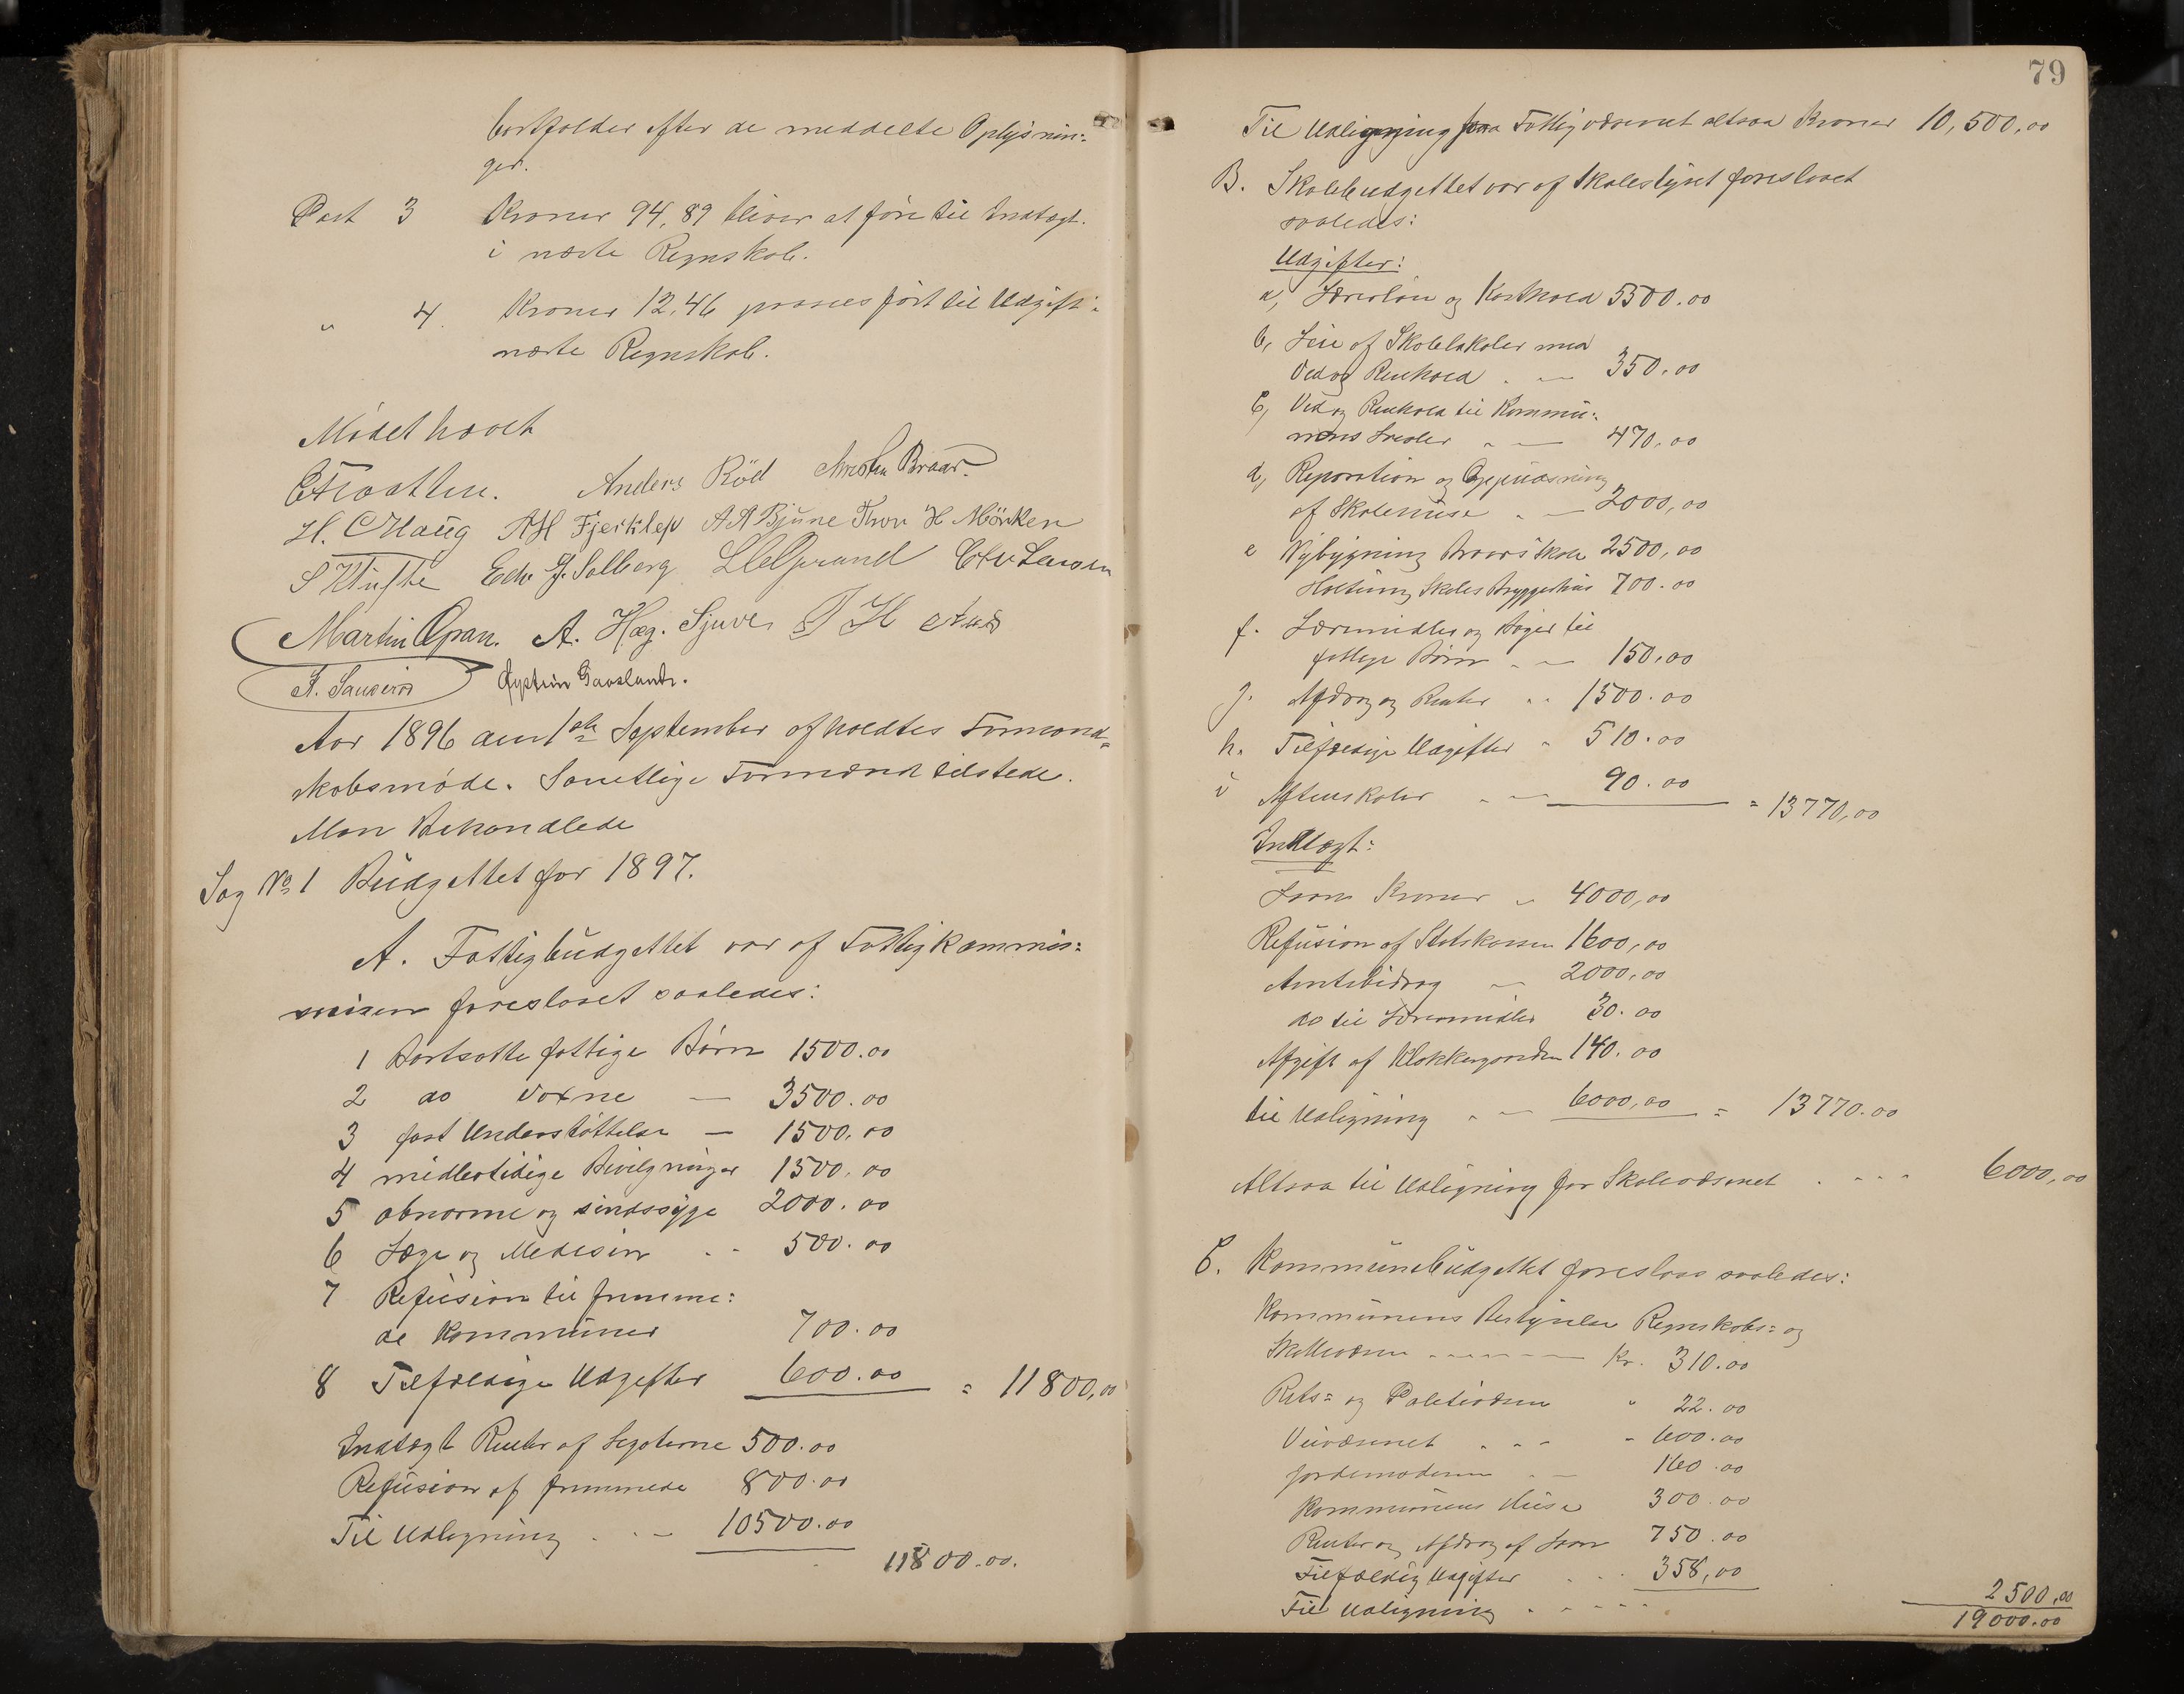 bortfalder efter de meddelte Oplysnin:
ger.
Post 3 Kroner 94,89 bliver at före til Indtægt
i næste Regnskab.
" 4. Kroner 12,46 paasees fört til Udgift i
næste Regnskab.
Mödet hævet
Anders Röd Braar.
H. C Haug AH Fjerklep A A Bjune Thron H Mörken
S Klufte Edv. J. Solberg Chr Larsen
Martin Opan. A. Hæg. Sjuve
Öystein Gaaslandt.
Aar 1896 den 1ste September afholdtes Formand=
skabsmöde. Samtlige Formænd tilstede.
Man behandlede
Sag No 1 Budgettet for 1897.
A. Fattigbudgettet var af Fattigkommis:
sionen foreslaaet saaledes:
1 Bortsatte fattige Börn 1500.00
2 do voxne — 3500.00
3 fast Understöttelse — 1500.00
4 midlertidige Bevilgninger 1500.00
5 abnorme og sindssyge 2000.00
6 Læge og Medesin - - 500.00
7 Refusion til fremme:
de Kommuner 700.00
8 Tilfældige Udgifter 600.00 = 11800,00
Indtægt Renter af Legaterne 500.00
Refusion af fremmede 800.00
Til Udligning - - - 10500.00
11800.00.
79
Til Udligning paa Fattigvæsenet altsaa Kroner 10,500,00
B. Skolebudgettet var af Skolestyret foreslaaet
saaledes:
Udgifter:
a, Lærerlön og Kosthold 5500.00
b, Leie af Skolelokaler med
Ved og Renhold . — 350.00
c, Ved og Renhold til Kommu:
nens Lokaler - — 470,00
d, Reparation og Oppudsning
af Skolehuse . — 2000,00
e Nybygning Braars Skole 2500,00
Holtung Skoles Bryggerhus 700.00
f. Læremidler og Böger til
fattige Börn - — 150,00
g. Afdrag og Renter - - 1500.00
h. Tilfældige Udgifter - 510.00
i Aftenskoler - — 90.00 = 13770,00
Indtægt:
Laan Kroner - 4000,00
Refusion af Statskassen 1600,00
Amtsbidrag — 2000,00
do til Læremidler 30.00
Afgift af Klokkergaarden 140.00
til Udligning - — 6000,00 = 13770.00
Altsaa til Udligning for Skolevæsenet . - - - 6000,00
C. Kommunebudgettet foreslaaes saaledes:
Kommunens Bestyrelse Regnskabs= og
Skattevæsen - - - - - — Kr. 310.00
Rets= og Politivæsen " 22.00
Veivæsenet - - - - 600.00
Jordemoderen . — 160.00
Kommunens Huse 300.00
Renter og Afdrag af Laan 750.00
Tilfældig Udgifter . - - 358,00
Til Udligning . - - - - 2500,00
19000.00